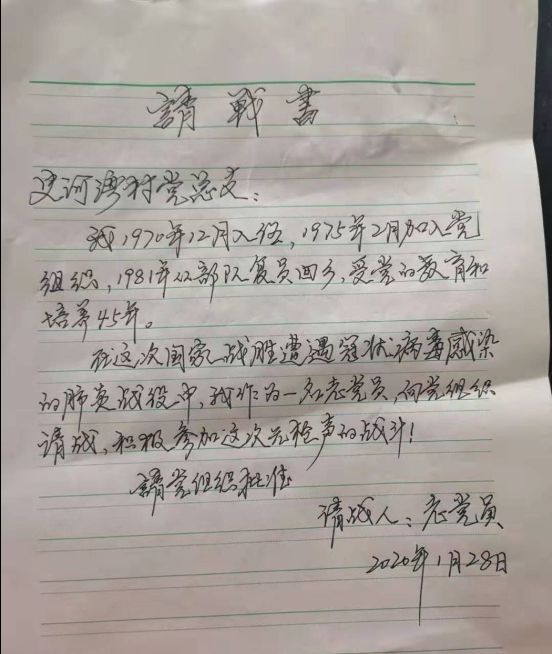 請戰書
史河湾村党总支:
我1970年12月入伍,1975年2月加入党
组织,1981年从部队复员回乡,受党的教育和
培养45年。
在这次国家战胜遭遇冠状病毒感染
的肺炎战役中,我作为一名老党员,向党组织
请战,积极参加这次无枪声的战斗!
請党组织批准
请战人:老党员
2020年1月28日